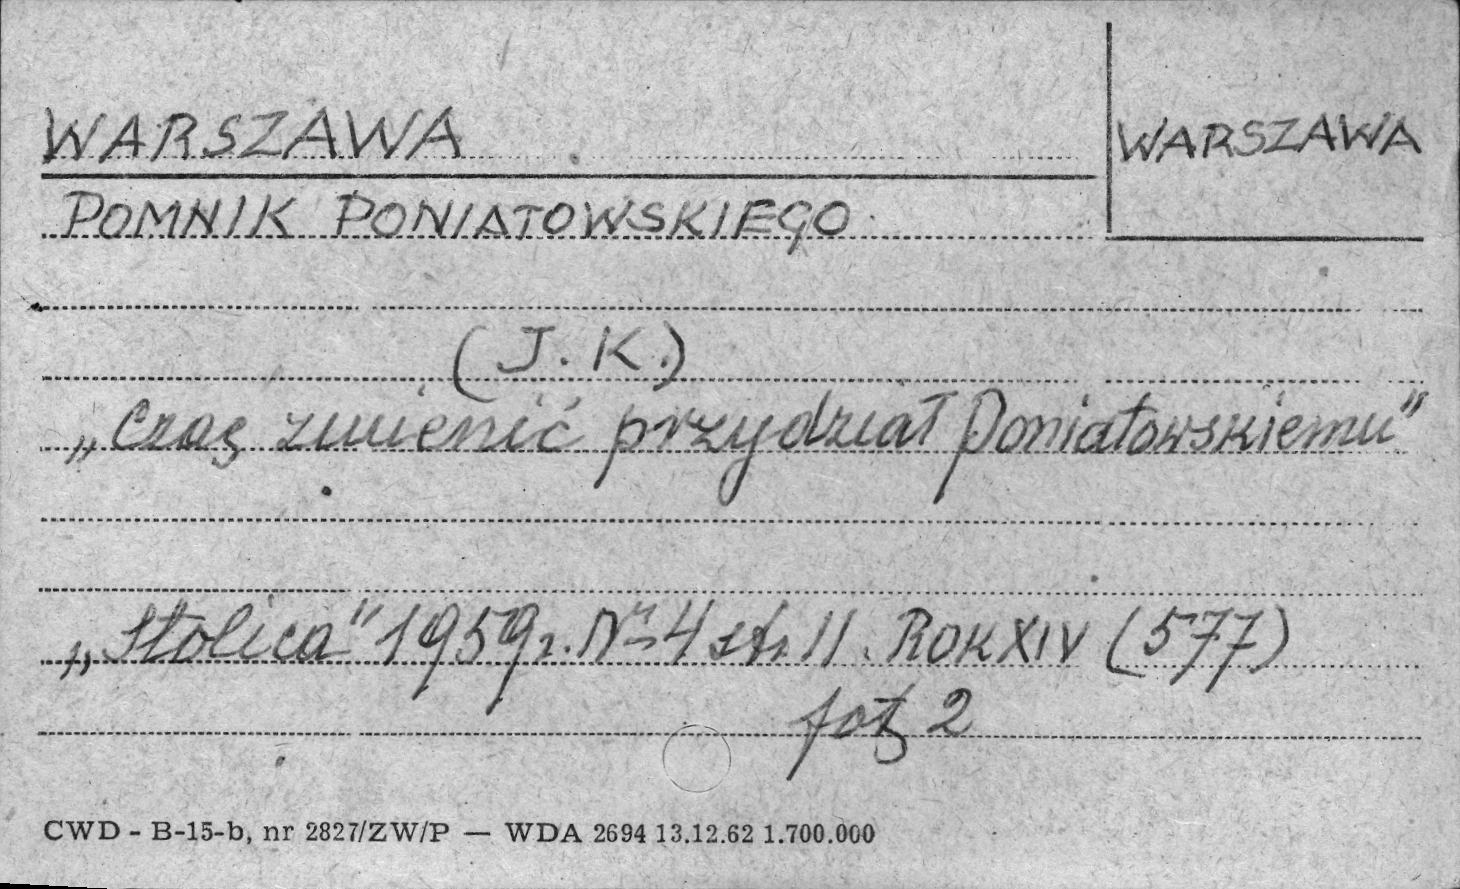 WARSZAWA
WARSZAWA
POMNIK PONIATOWSKIEGO
(J. K.)
„Czas zmienić przydział Poniatowskiemu”
„Stolica” 1959 r. Nr 4 str 11. ROK XIV (577)
fot 2
CWD - B-15-b, nr 2827/ZW/P — WDA 2694 13.12.62 1.700.000